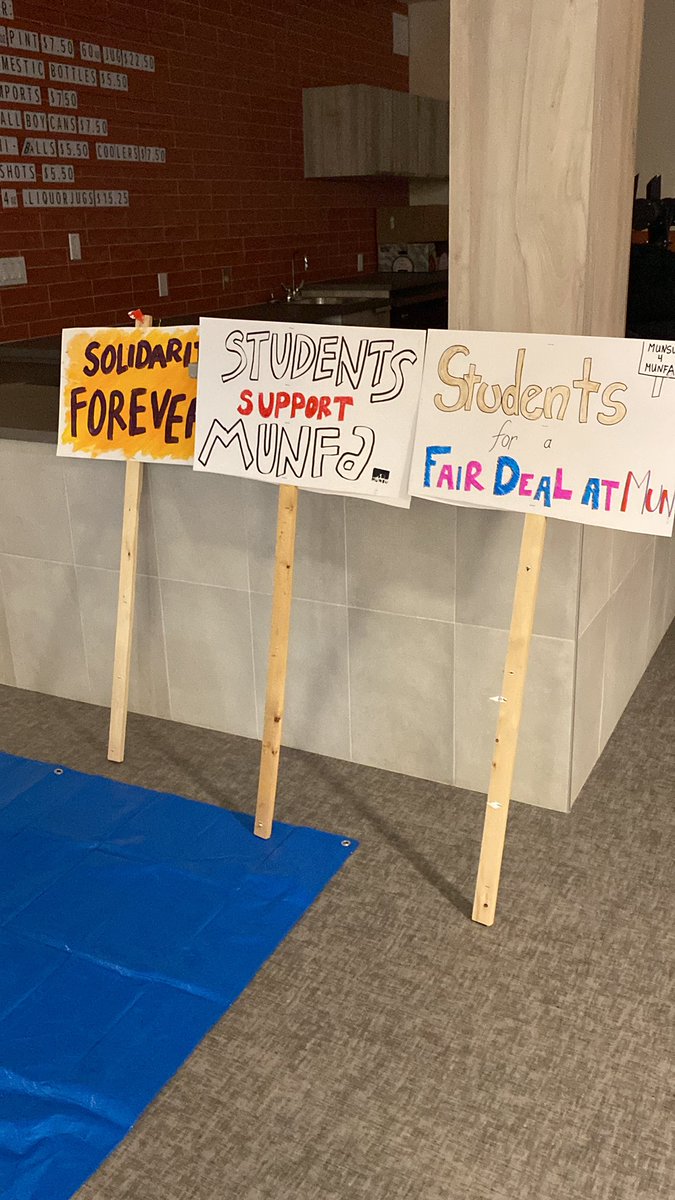 R:
PINT $7.50 60oz JUG $22.50
MESTIC BOTTLES $5.50
MPORTS $7.50
ALL BOY CANS $7.50
ALLS $5.50 COOLERS $7.50
SHOTS $5.50
4oz LIQUOR JUGS $15.25
SOLIDARI
FOREVE
STUDENTS
SUPPORT
MUNFA
MUNSU
Students
for a
FAIR DEAL AT MUN
MUNSU
4
MUNFA